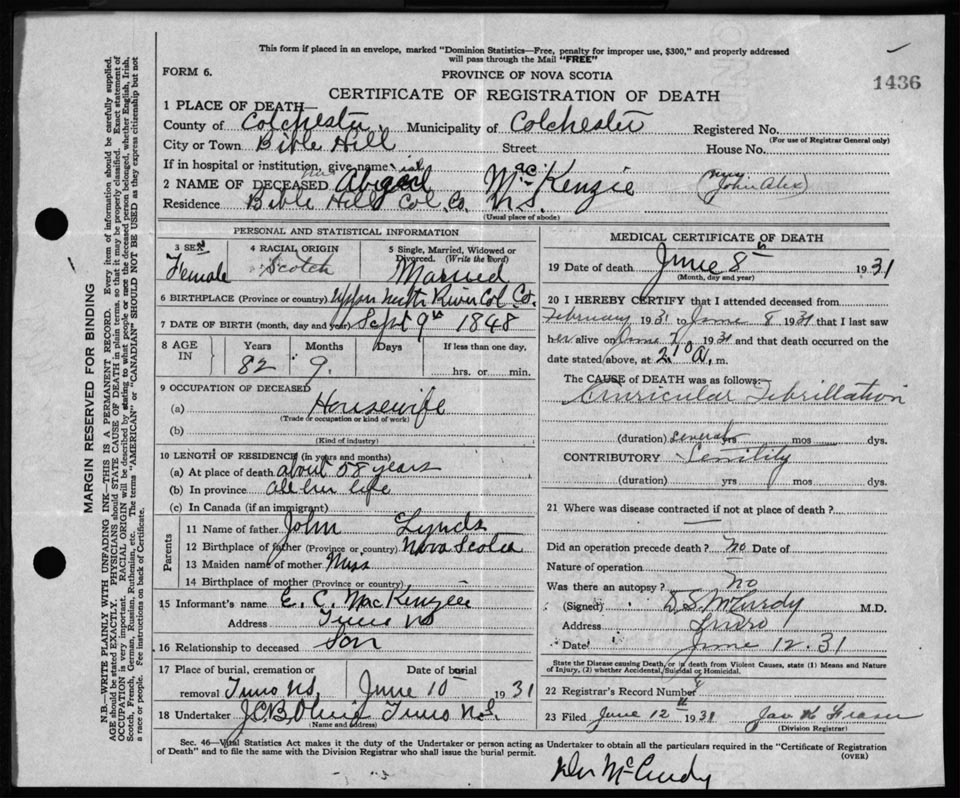 This form if placed in an envelope, marked "Dominion Statistics—Free, penalty for improper use, $300," and properly addressed
will pass through the Mail "FREE"
FORM 6. PROVINCE OF NOVA SCOTIA
1436
CERTIFICATE OF REGISTRATION OF DEATH
1 PLACE OF DEATH—
County of Colchester Municipality of Colchester Registered No.
(For use of Registrar General only)
City or Town Bible Hill Street House No.
If in hospital or institution, give name
2 NAME OF DECEASED Abigail MacKenzie (Mrs John Alex)
Residence Bible Hill Col. Co. N.S.
(Usual place of abode)
PERSONAL AND STATISTICAL INFORMATION
3 SEX 4 RACIAL ORIGIN 5 Single, Married, Widowed or
Divorced. (Write the word)
Female Scotch Married
6 BIRTHPLACE (Province or country) Upper North River Col. Co.
7 DATE OF BIRTH (month, day and year) Sept 9th 1848
8 AGE IN Years Months Days If less than one day.
82 9. hrs. or min.
9 OCCUPATION OF DECEASED
(a) Housewife
(Trade or occupation or kind of work)
(b)
(Kind of industry)
10 LENGTH OF RESIDENCE (in years and months)
(a) At place of death about 58 years
(b) In province all her life
(c) In Canada (if an immigrant)
Parents
11 Name of father John Lynds
12 Birthplace of father (Province or country) Nova Scotia
13 Maiden name of mother Miss
14 Birthplace of mother (Province or country)
15 Informant's name E. C. MacKenzie
Address Truro NS
16 Relationship to deceased Son
17 Place of burial, cremation or Date of burial
removal Truro NS, June 10 1931
18 Undertaker J.C.B. Truro N.S.
Name and address)
MEDICAL CERTIFICATE OF DEATH
19 Date of death June 8th 1931
(Month, day and year)
20 I HEREBY CERTIFY that I attended deceased from
February 1931 to June 8 1931 that I last saw
her alive on June 1931 and that death occurred on the
date stated above, at 2 10 a. m.
The CAUSE of DEATH was as follows:
Auricular Fibrillation
(duration) several yrs mos dys.
CONTRIBUTORY Senility
(duration) yrs mos dys.
21 Where was disease contracted if not at place of death?
Did an operation precede death? No Date of
Nature of operation
Was there an autopsy? No
(Signed) D.S. McCurdy M.D.
Address Truro
Date June 12. 31
State the Disease causing Death, or in death from Violent Causes, state (1) Means and Nature
of Injury, (2) whether Accidental, Suicidal or Homicidal.
22 Registrar's Record Number
23 Filed June 12th 1931 Jas K Fraser
(Division Registrar)
Sec. 46—Vital Statistics Act makes it the duty of the Undertaker or person acting as Undertaker to obtain all the particulars required in the "Certificate of Registration
of Death" and to file the same with the Division Registrar who shall issue the burial permit.
(OVER)
McCurdy
MARGIN RESERVED FOR BINDING
N.B.—WRITE PLAINLY WITH UNFADING INK—THIS IS A PERMANENT RECORD. Every item of information should be carefully supplied.
AGE should be stated EXACTLY. PHYSICIANS should STATE CAUSE OF DEATH in plain terms, so that it may be properly classified. Exact statement of
OCCUPATION is very important. RACIAL ORIGIN will be described by stating to what people or race the deceased person belonged, whether English, Irish,
Scotch, French, German, Russian, Ruthenian, etc. The terms "AMERICAN" or "CANADIAN" SHOULD NOT BE USED as they express citizenship but not
a race or people. See instructions on back of Certificate.